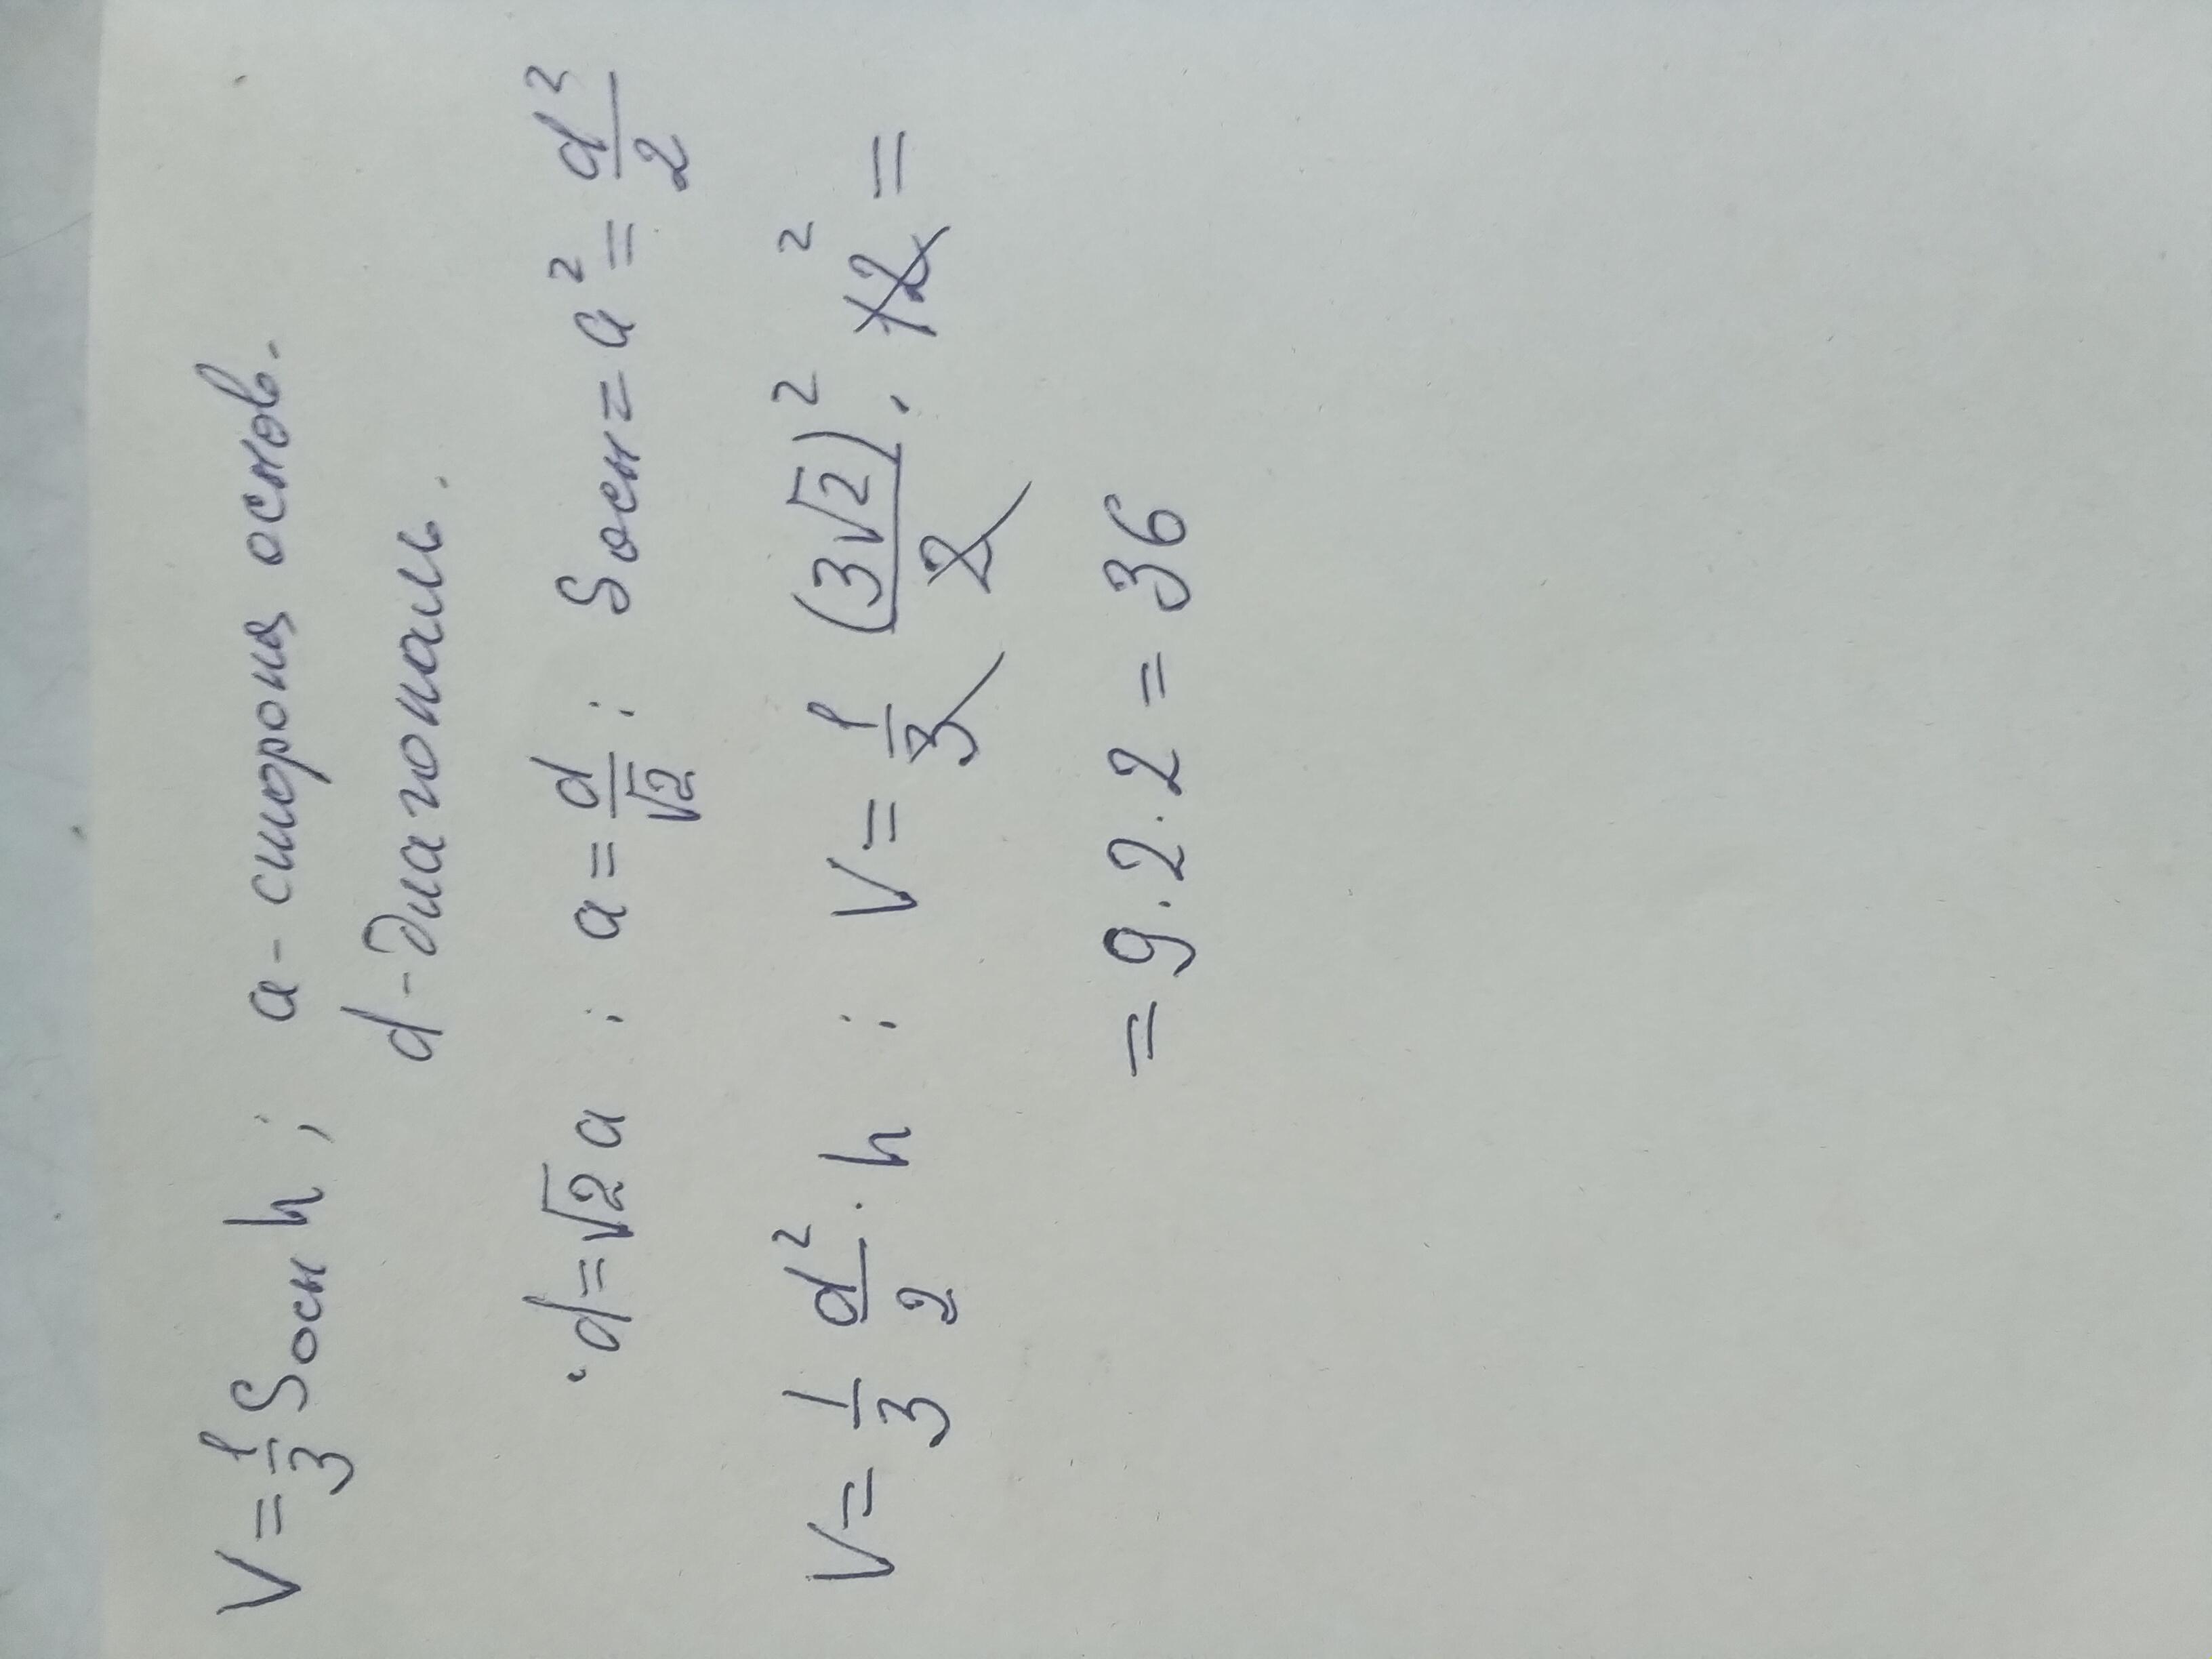 V = 1/3 Sосн h ; a - сторона основ.
d - диагональ.
d = √2 a ; a = d/√2 ; Sосн = a² = d²/2
V = 1/3 d²/2 · h ; V = 1/3 (3√2)²/2 · 12 2 =
= 9 · 2 · 2 = 36